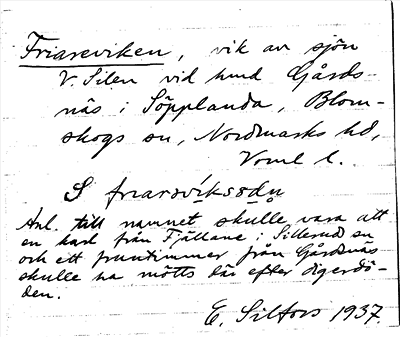 Friareviken, vik av sjön
V. Silen vid hmd Gårds-
näs i Söpplanda, Blom-
skogs sn, Nordmarks hd,
Vrml l.
S friarsvíksədn
Anl. till namnet skulle vara att
en karl från Fjällane i Sillerud sn
och ett fruntimmer från Gårdsnäs
skulle ha mötts där efter digerdö-
den.
E. Silfors 1937.